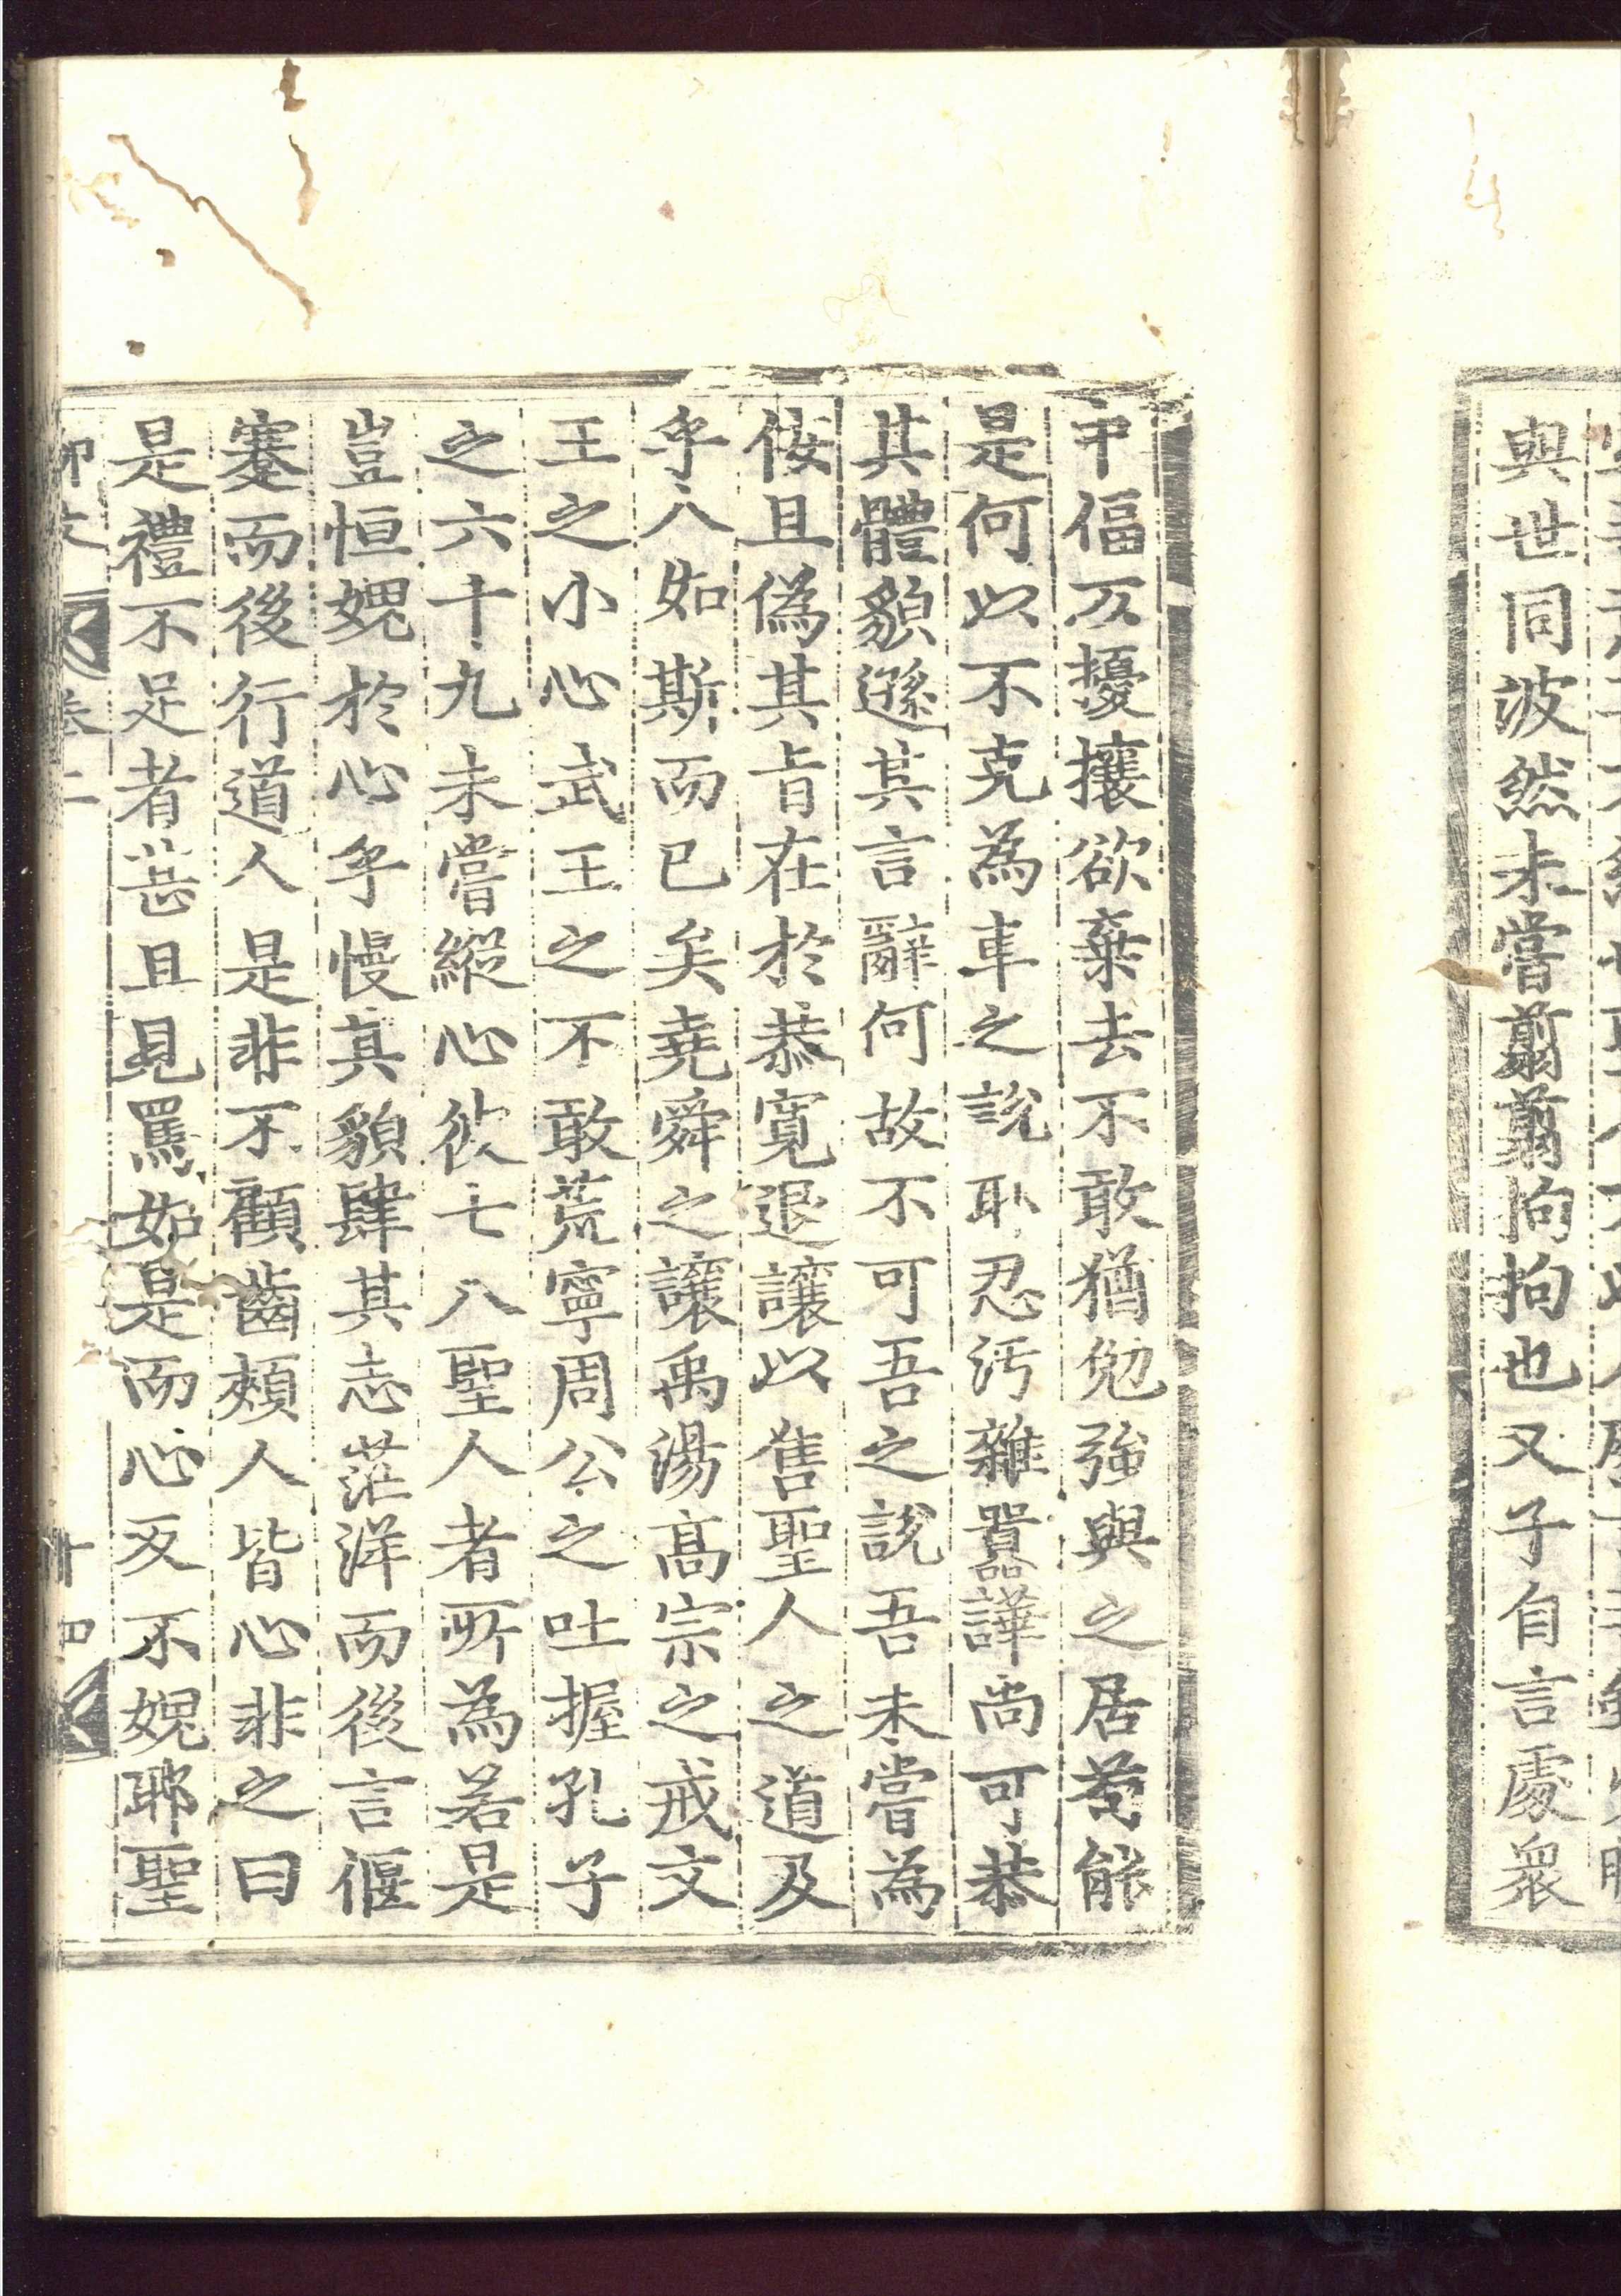 與世同波然未嘗翦翦拘拘也又子自言處衆
中偪仄擾攘欲棄去不敢猶勉強與之居苟能
是何以不克爲車之說耻忍汚雜囂譁尚可恭
其體貌遜其言辭何故不可吾之說吾未嘗爲
佞且偽其旨在於恭寬退讓以售聖人之道及
乎人如斯而已矣堯舜之讓禹湯高宗之戒文
王之小心武王之不敢荒寧周公之吐握孔子
之六十九未嘗縱心彼七八聖人者所爲若是
豈恒媿於心乎慢其貌肆其志茫洋而後言偃
蹇而後行道人是非不顧齒頰人皆心非之曰
是禮不足者甚且見罵如是而心反不媿耶聖
柳文 卷二 十四